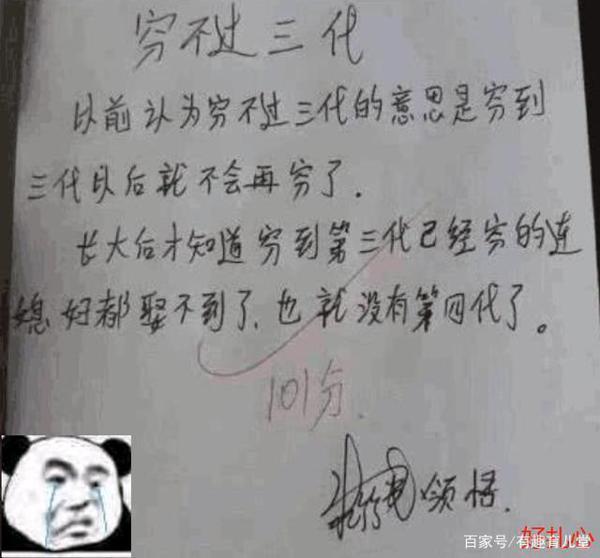 穷不过三代
以前认为穷不过三代的意思是穷到
三代以后就不会再穷了.
长大后才知道穷到第三代已经穷的连
媳妇都娶不到了,也就没有第四代了。
101分.
领悟.
好扎心
百家号/有趣育儿堂